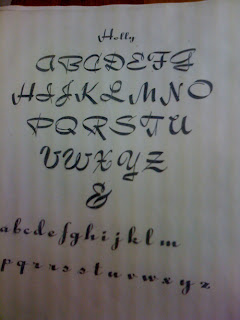 Holly
ABCDEFG
HIJKLMNO
PQRSTU
VWXYZ
&
abcdefghijklm
pqrrsstuvwxyz